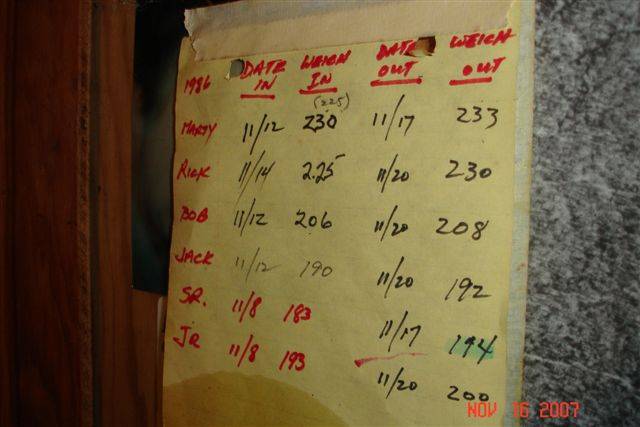 1986 DATE IN WEIGH IN DATE OUT WEIGH OUT
(225)
MARTY 11/12 230 11/17 233
RICK 11/14 2.25 11/20 230
BOB 11/12 206 11/20 208
JACK 11/12 190 11/20 192
SR. 11/8 183 11/17 194
JR 11/8 193 11/20 200
NOV 16 2007